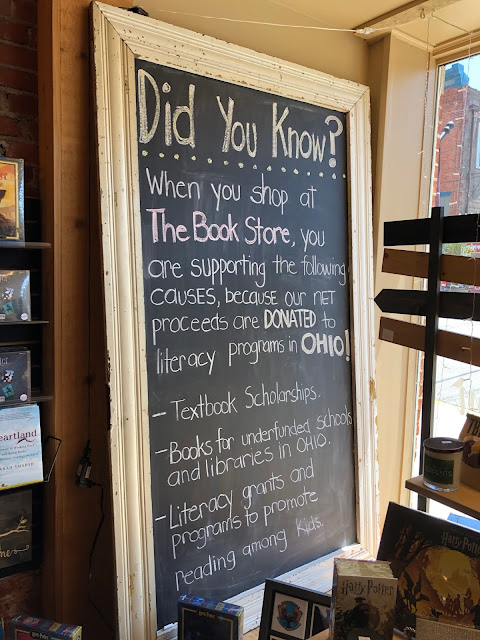 Did You Know?
When you shop at
The Book Store, you
are supporting the following
causes, because our net
proceeds are DONATED to
literacy programs in OHIO!
- Textbook Scholarships.
- Books for underfunded schools
and libraries in OHIO.
- Literacy grants and
programs to promote
reading among Kids.
eartland
Harry Potter
Harry Potter